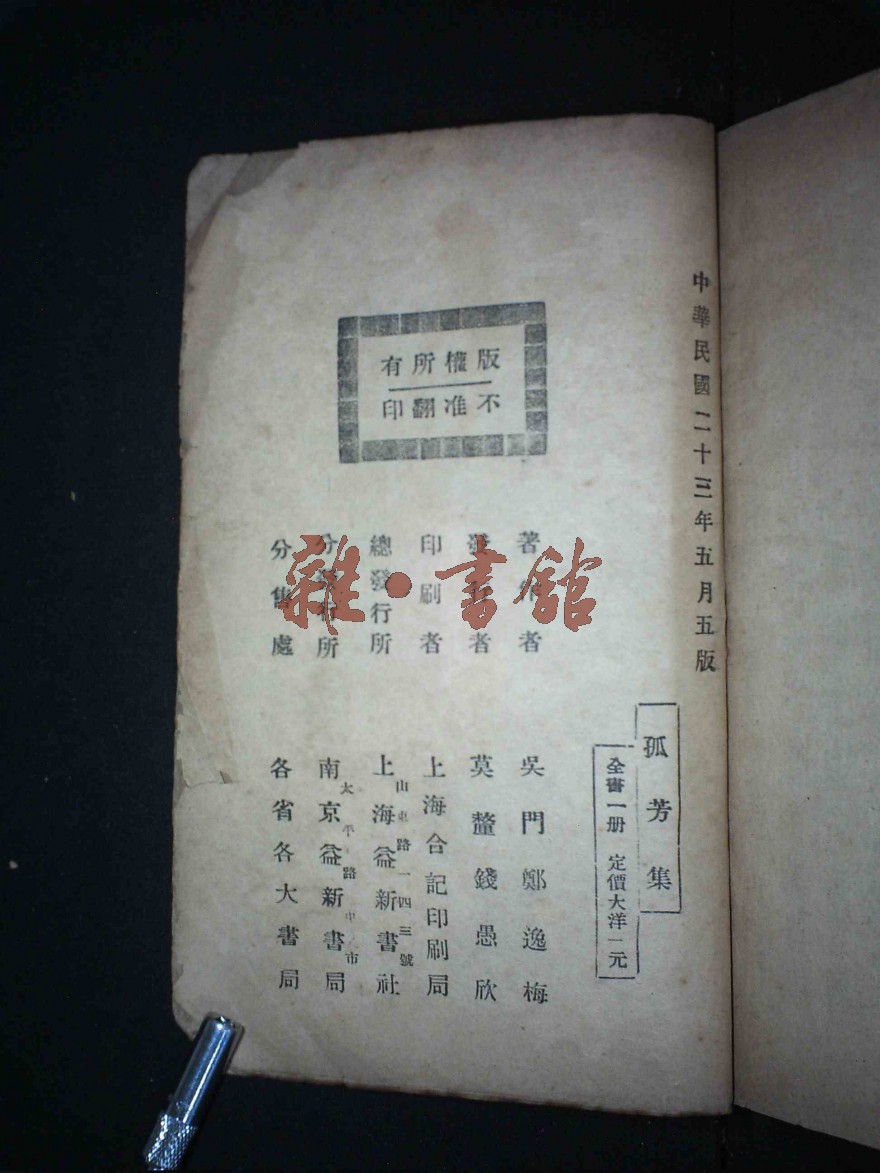 中華民國二十三年五月五版
孤芳集
全書一册 定價大洋一元
版權所有
不准翻印
著作者 吳門鄭逸梅
發行者 莫釐錢愚欣
印刷者 上海合記印刷局
總發行所 上海益新書社
山東路一四三號
分發行所 南京益新書局
太平路中市
分售處 各省各大書局
雜·書館